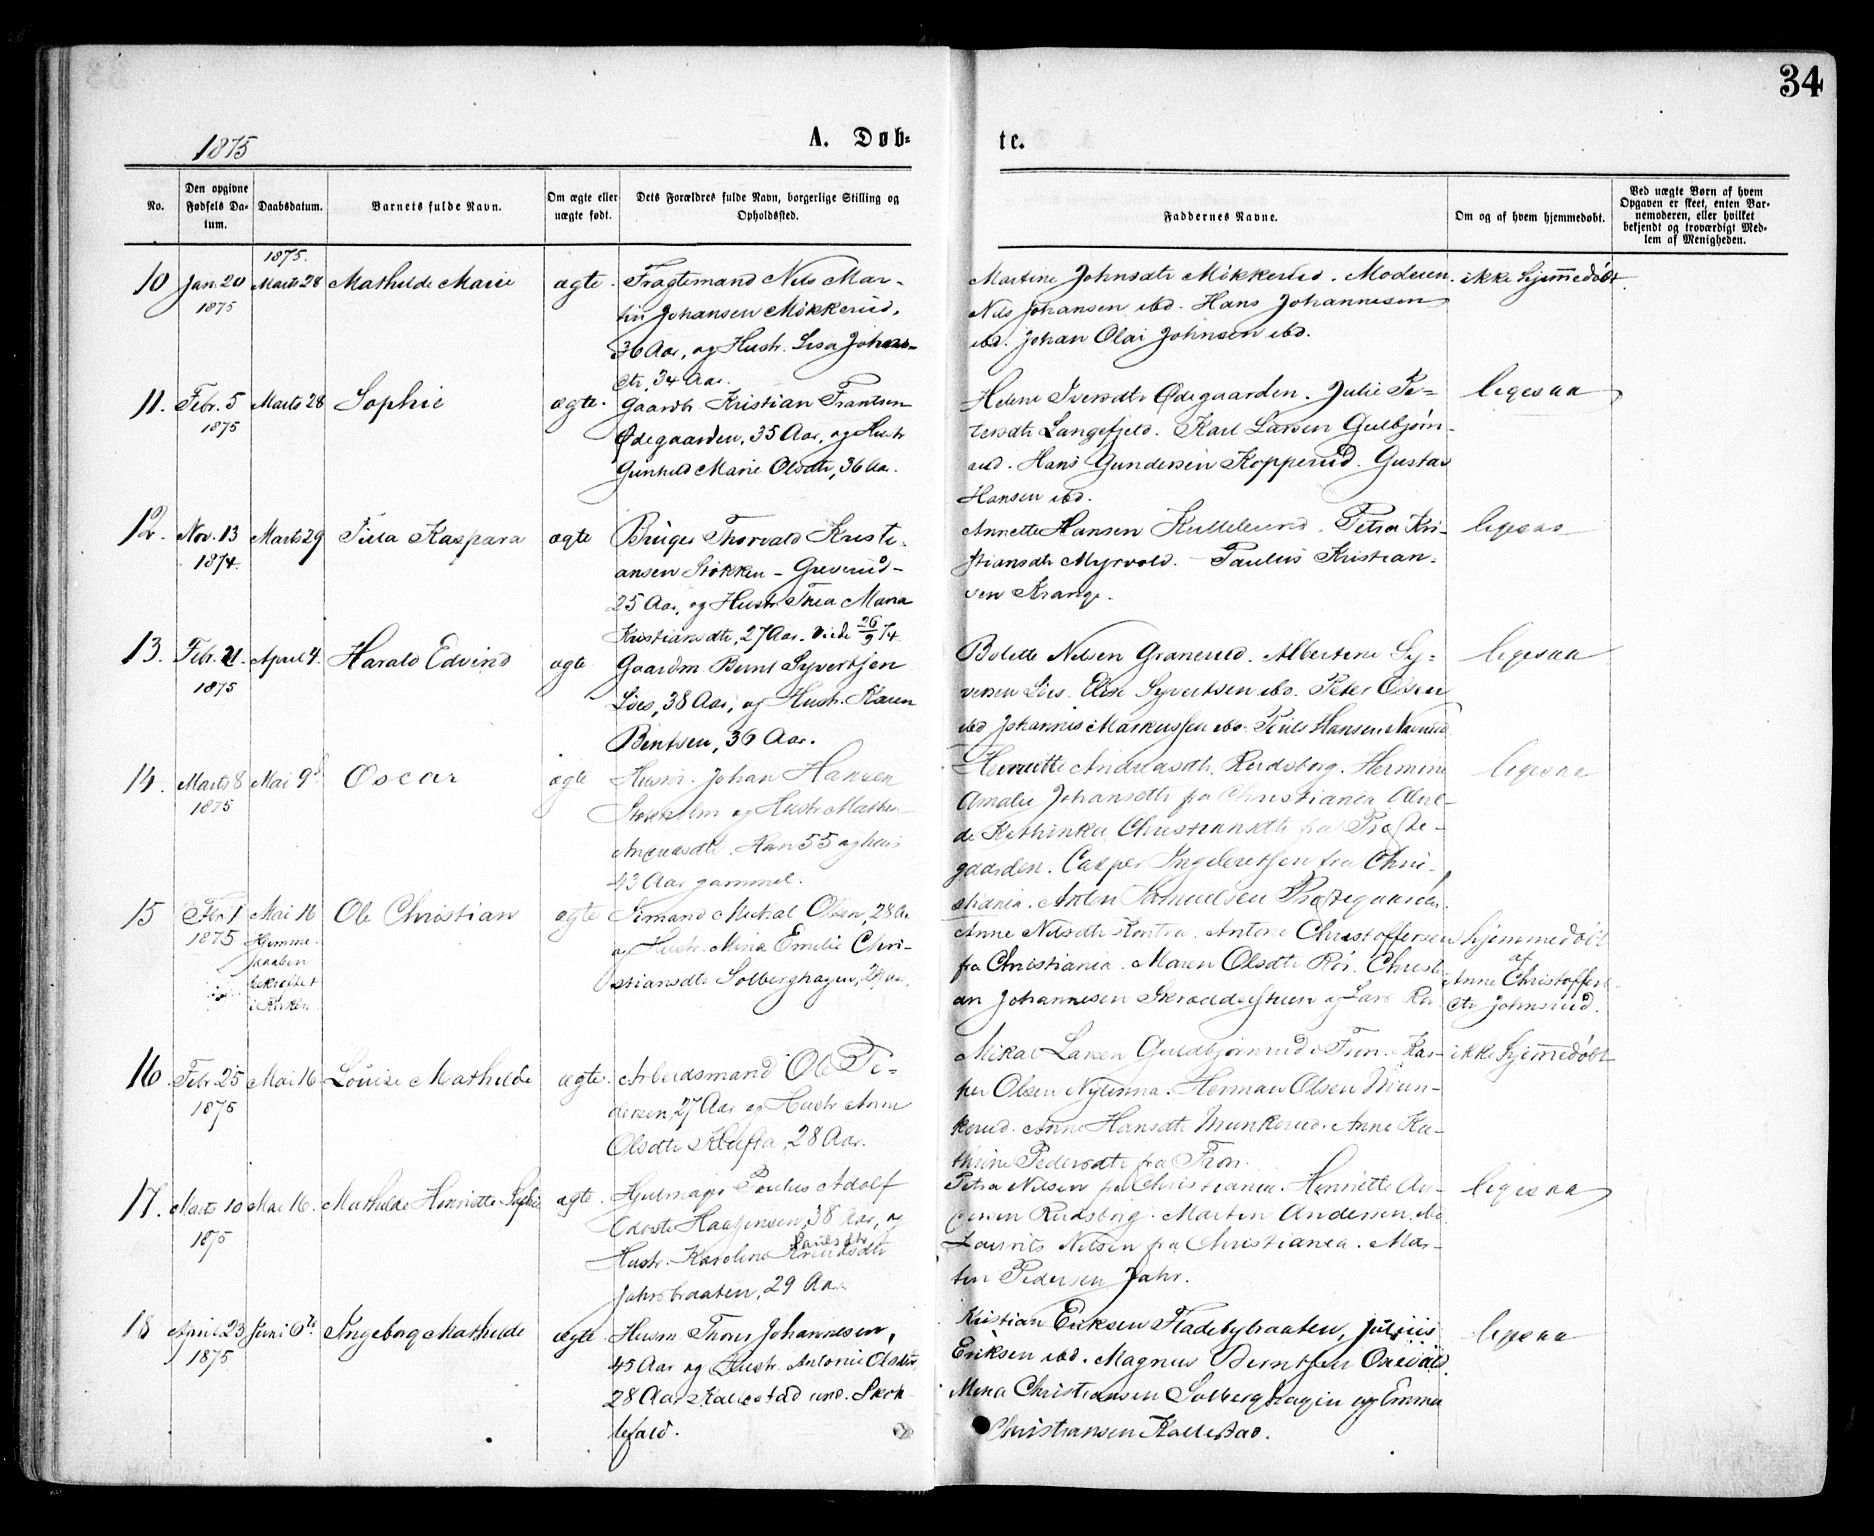 34
1875
A. Døb-
te.
No.
Den opgivne
Fødsels Da-
tum.
Daabsdatum.
Barnets fulde Navn.
Om ægte eller
uægte født.
Dets Forældres fulde Navn, borgerlige Stilling og
Opholdssted.
Faddernes Navne.
Om og af hvem hjemmedøbt.
Ved uægte Børn af hvem
Opgaven er skeet, enten Bar-
nemoderen, eller hvilket
bekjendt og troværdigt Med-
lem af Menigheden.
1875.
10
Jan. 20
1875
Marts 28
Mathilde Marie
ægte.
Fragtemand Nils Mar-
tin Johansen Mikkerud,
36 Aar, og Hustr. Lisa Johans-
dtr, 34 Aar.
Martine Johnsdtr Mikkerud. Moderen.
Nils Johansen ibd. Hans Johannesen
ibd. Johan Olai Johnsen ibd.
ikke hjemmedøbt.
11.
Febr. 5
1875
Marts 28
Sophie
ægte.
Gaardbr. Kristian Frantsen
Ødegaarden, 35 Aar, og Hustr
Gunhild Marie Olsdtr, 36 Aar.
Helene Iversdtr Ødegaarden. Julie Pe-
tersdtr Langefjeld. Karl Larsen Gulbjørn-
rud. Hans Gundersen Kopperud. Gustav
Hansen ibd.
ligesaa
12.
Nov. 13
1874.
Marts 29
Kaspara
ægte
Bruger Thorvald Kristi-
ansen Stokken - Greverud -
25 Aar, og Hustr Thea Maria
Kristiansdtr, 27 Aar. Viede 26/9 74.
Annette Hansen Kullelund. Petra Kri-
stiansdtr Myrvold. - Paulus Kristian-
sen Krange.
ligesaa
13.
Febr. 21
1875
April 4.
Harald Edvind
ægte
Gaardm Bernt Syvertsen
Lies, 38 Aar, og Hustr. Karen
Bentsen, 36 Aar.
Bolette Nilsen Granerud. Albertine Sy-
versen Lies. Elise Syvertsen ibd. Peter Olsen
ibd Johannes Markussen ibd. Nils Hansen
ligesaa
14.
Marts 8
1875
Mai 9d
Oscar
ægte
Husm. Johan Hansen
Stokholm og Hustr Mathea
Andreasdtr. Han 55 og hun
43 Aar gammel.
Henriette Andreasdtr. Rudsborg. Hermine
Amalie Johansdtr fra Christiania Alvil-
de Kathinka Christiansdtr fra Præste-
gaarden. Casper Ingebretsen fra Chri-
stiania. Anton Samuelsen Præstegaarden.
ligesaa
15
Febr. 1
1875
Mai 16
Hjemme-
daaben
bekræftet
i Kirken
Ole Christian
ægte
Simand Mikal Olsen, 28 A.
og Hustr. Mina Emilie Chri-
stiansdtr Solberghagen, 29 Aar.
Anne Nilsdtr Kontra. Antone Christoffersen
fra Christiania. Maren Olsdtr Rør. Christi-
an Johannesen Skrædderstuen og Lars Rør
hjemmedøbt
af
Anne Christoffers-
dtr Johnsrud.
16
Febr. 25
1875
Mai 16
Louise Mathilde
ægte.
Arbeidsmand Ole Pe-
dersen, 27 Aar og Hustr Anne
Olsdtr Kløfta, 28 Aar.
Mikal Larsen Guldbjørnrud i Fron. Kas-
per Olsen Nytenna. Herman Olsen Mun-
kerud. Anne Hansdtr Munkerud. Anne Ka-
thrine Pedersdtr fra Fron.
ikke hjemmedøbt
17.
Marts 10
1875
Mai 16.
Mathilde Henriette Sophie
ægte.
Hjulmager Paulus Adolf
Haagensen, 38 Aar, og
Paulsdtr
Hustr. Karoline Knudsdtr
Jahrsbraaten, 29 Aar.
Petra Nilsen fra Christiania. Henriette An-
dersen Rudsborg. Martin Andersen ibd.
Laurits Nilsen fra Christiania. Mar-
tin Pedersen Jahr.
ligesaa
18
April 23
1875
Juni 6te
Ingeborg Mathilde
ægte
Husm. Thorer Johannesen,
45 Aar og Hustr. Antonie Olsdtr,
28 Aar Kallestad und. Skok-
lefald.
Kristian Eriksen Fladebybraaten, Julius
Eriksen ibd. Magnus Berntsen Oxevald.
Mina Christiansen Solberghagen og Emma
Christiansen Kallestad.
ligesaa